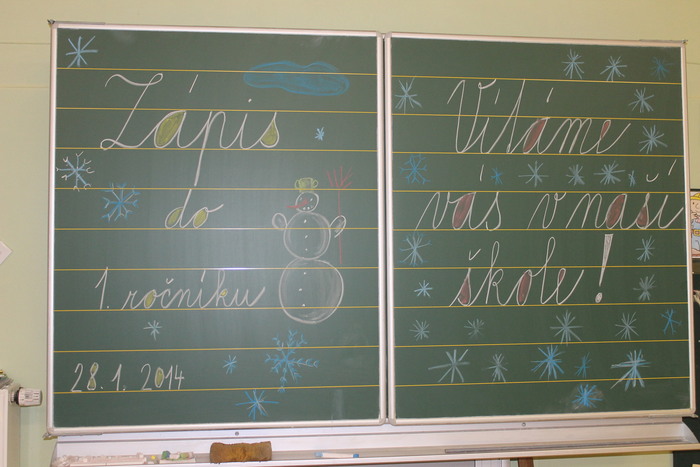 Zápis
do
1. ročníku
28. 1. 2014
Vítáme
vás v naší
škole!